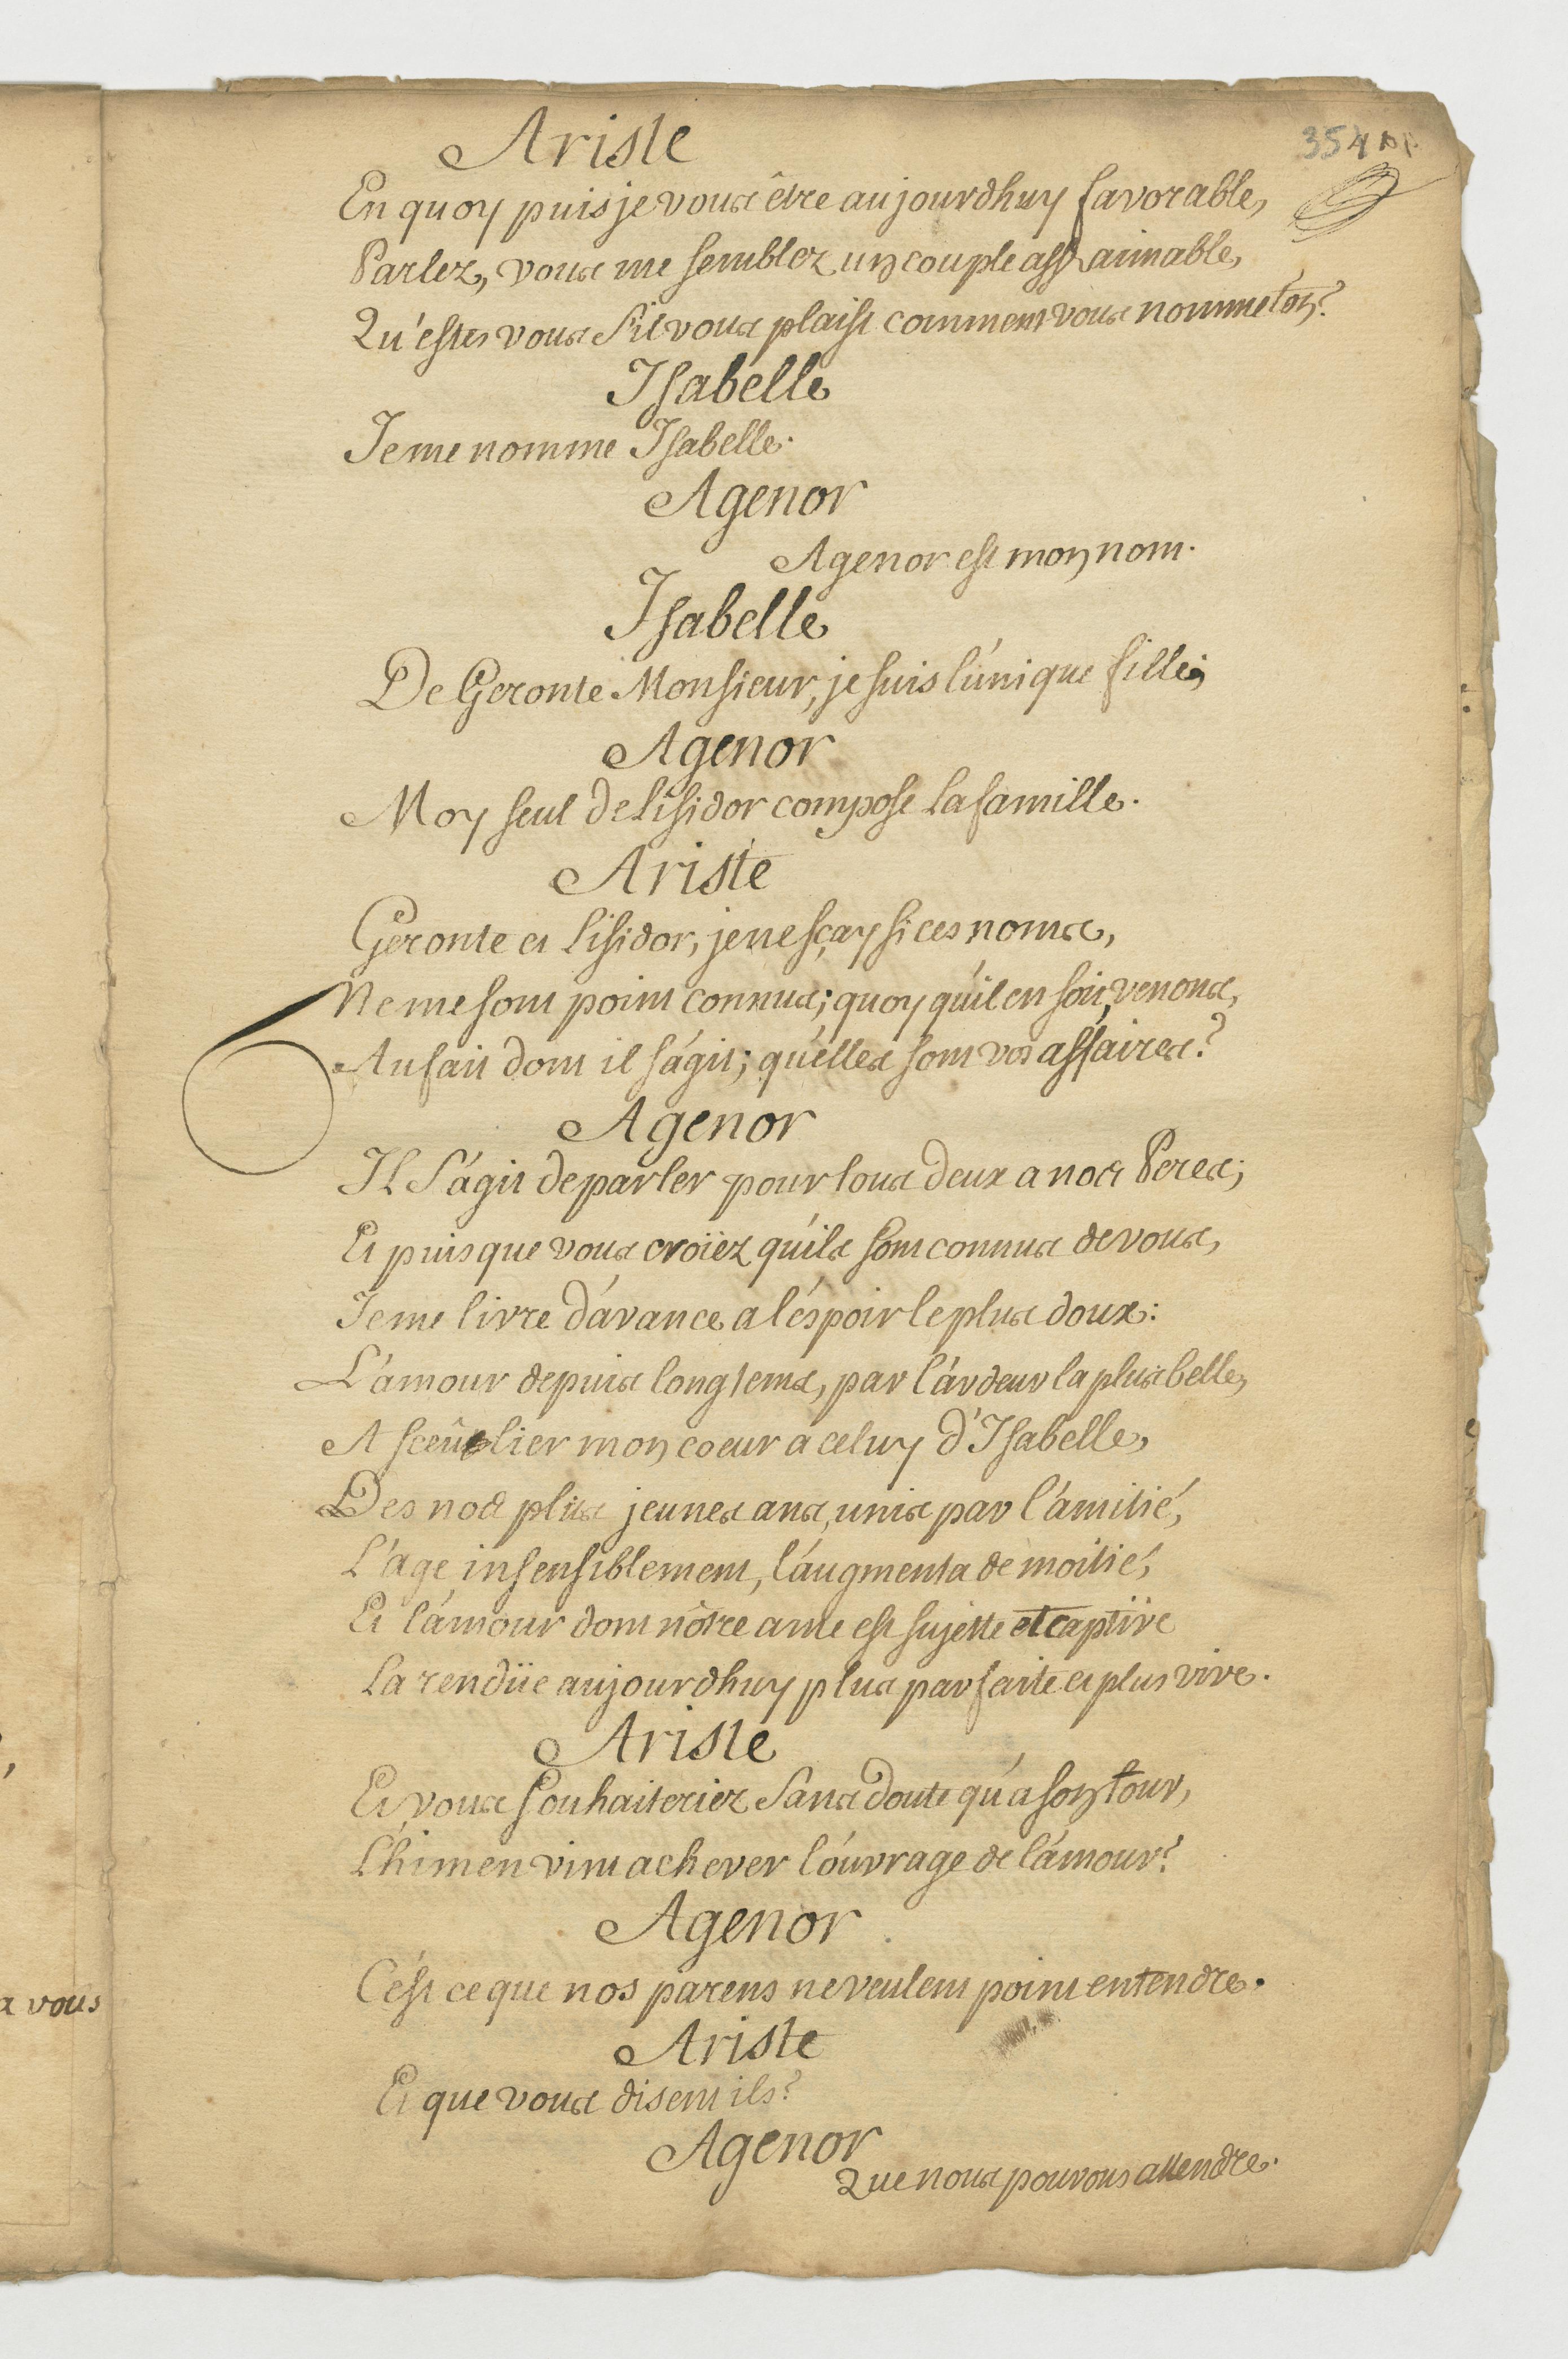 354
Ariste
En quoy puis je vous être aujourdhuy favorable,
Parlez, vous me semblez un couple assz aimable,
Qu'estes vous s'il vous plaist comment vous nomme t'on?
Isabelle
Je me nomme Isabelle.
Agenor
Agenor est mon nom.
Isabelle
De Geronte Monsieur, je suis l'unique fille;
Agenor
Moy seul de Lisidor compose la famille.
Ariste
Geronte et Lisidor, je ne sçay si ces noms,
Ne me sont point connus; quoy qu'il en soit, venons,
Au fait dont il s'agit; qu'elles sont vos affaires?
Agenor
Il s'agit de parler pour tous deux a nos Peres;
Et puisque vous croïez qu'ils sont connus de vous,
Je me livre d'avance a l'éspoir le plus doux:
L'amour depuis longtems, par l'ardeur la plus belle,
A sceû lier mon coeur a celuy d'Isabelle,
Des nos plus jeunes ans, unis par l'amitié,
L'age insensiblement, l'augmenta de moitié,
Et l'amour dont nôtre ame est sujette et captive
La rendüe aujourdhuy plus parfaite et plus vive.
Ariste
Et vous souhaiteriez sans doute qu'a son tour,
L'himen vint achever l'ouvrage de l'amour?
Agenor
C'est ce que nos parens ne veulent point entendre.
Ariste
Et que vous disent ils?
Agenor
Que nous pouvons attendre.
a vous